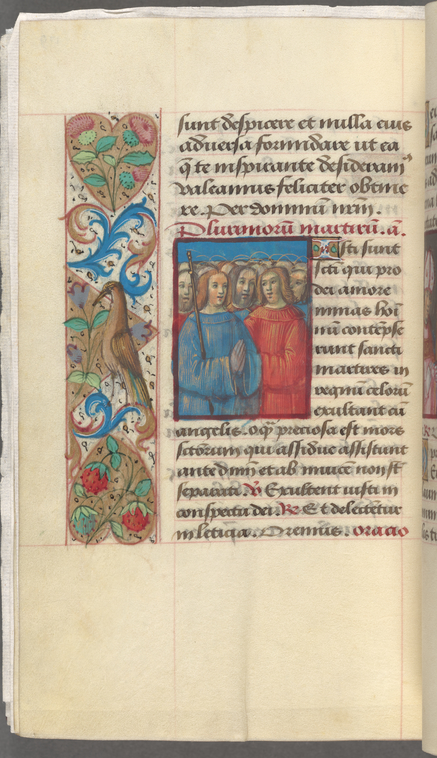 sunt despicere et nulla eius
adversa formidare ut ea
q̄ te inspirante desideram᷒
valeamus feliciter obtine
re. Per dominū nr̄m.
Plurimorū martirū. a.
Isti sunt
sc̄ti qui pro
dei amore
minas hoī
nū contēpse
runt sancti
martires in
regnū celorū
exultant cū
angelis. o q̄ preciosa est mors
sc̄torum qui assidue assistunt
ante dn̄m et ab invicē non st̄
separati. ℣ Exultent iusti in
conspectu dei. ℟ Et delectētur
in leticia. Oremus. oracio